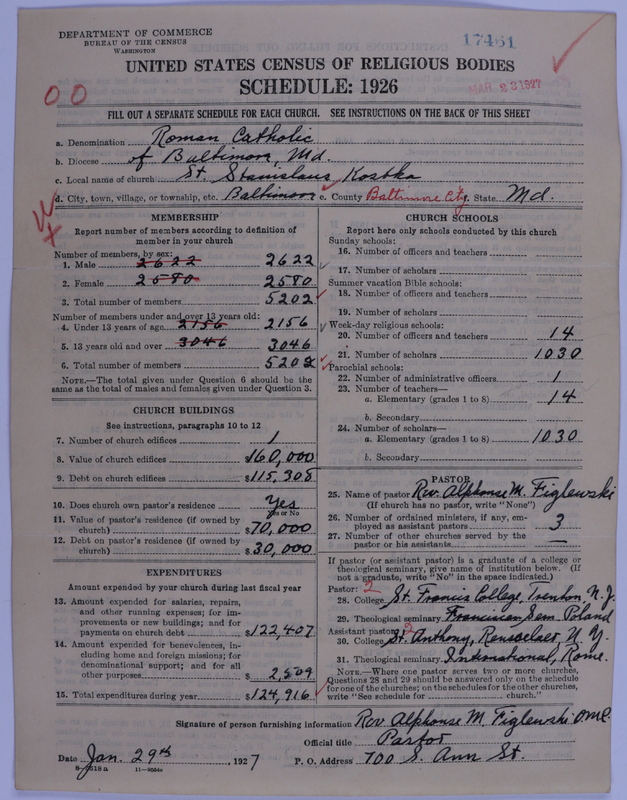 DEPARTMENT OF COMMERCE
BUREAU OF THE CENSUS
WASHINGTON
17461
UNITED STATES CENSUS OF RELIGIOUS BODIES
SCHEDULE: 1926
MAR 23 1927
00
FILL OUT A SEPARATE SCHEDULE FOR EACH CHURCH. SEE INSTRUCTIONS ON THE BACK OF THIS SHEET
a. Denomination Roman Catholic
b. Diocese of Baltimore, Md.
c. Local name of church St. Stanislaus Kostka
d. City, town, village, or township, etc. Baltimore e. County Baltimore City. State Md.
MEMBERSHIP
Report number of members according to definition of
member in your church
Number of members, by sex:
1. Male 2622 2622
2. Female 2580 2580
3. Total number of members 5202
Number of members under and over 13 years old:
4. Under 13 years of age 2156 2156
5. 13 years old and over 3046 3046
6. Total number of members 5202
NOTE.—The total given under Question 6 should be
same as the total of males and females given under Question 3.
CHURCH BUILDINGS
See instructions, paragraphs 10 to 12
7. Number of church edifices 1
8. Value of church edifices $160,000
9. Debt on church edifices $115,308
10. Does church own pastor's residence Yes
Yes or No
11. Value of pastor's residence (if owned by
church) $70,000
12. Debt on pastor's residence (if owned by
church) $30,000
EXPENDITURES
Amount expended by your church during last fiscal year
13. Amount expended for salaries, repairs,
and other running expenses; for im-
provements or new buildings; and for
payments on church debt $122,407
14. Amount expended for benevolences, in-
cluding home and foreign missions; for
denominational support; and for all
other purposes $2,509
15. Total expenditures during year $124,916
CHURCH SCHOOLS
Report here only schools conducted by this church
Sunday schools:
16. Number of officers and teachers
17. Number of scholars
Summer vacation Bible schools:
18. Number of officers and teachers
19. Number of scholars
Week-day religious schools:
20. Number of officers and teachers 14
21. Number of scholars 1030
Parochial schools:
22. Number of administrative officers 1
23. Number of teachers—
a. Elementary (grades 1 to 8) 14
b. Secondary
24. Number of scholars—
a. Elementary (grades 1 to 8) 1030
b. Secondary
PASTOR
25. Name of pastor Rev. Alphonse M. Figlewski
(If church has no pastor, write "None")
26. Number of ordained ministers, if any, em-
ployed as assistant pastors 3
27. Number of other churches served by the
pastor or his assistants —
If pastor (or assistant pastor) is a graduate of a college or
theological seminary, give name of institution below. (If
not a graduate, write "No" in the space indicated.)
Pastor: 2
28. College St. Francis College, Trenton, N. J.
29. Theological seminary Franciscan Sem. Poland
Assistant pastor: 2
30. College St. Anthony, Rensselaer, N. Y.
31. Theological seminary International, Rome.
NOTE.—Where one pastor serves two or more churches,
Questions 28 and 29 should be answered only on the schedule
for one of the churches; on the schedules for the other churches,
write "See schedule for church."
Signature of person furnishing information Rev. Alphonse M. Figlewski OMC.
Official title Pastor
Date Jan. 29th, 1927 P. O. Address 700 S. Ann St.
8—518a 11—9054